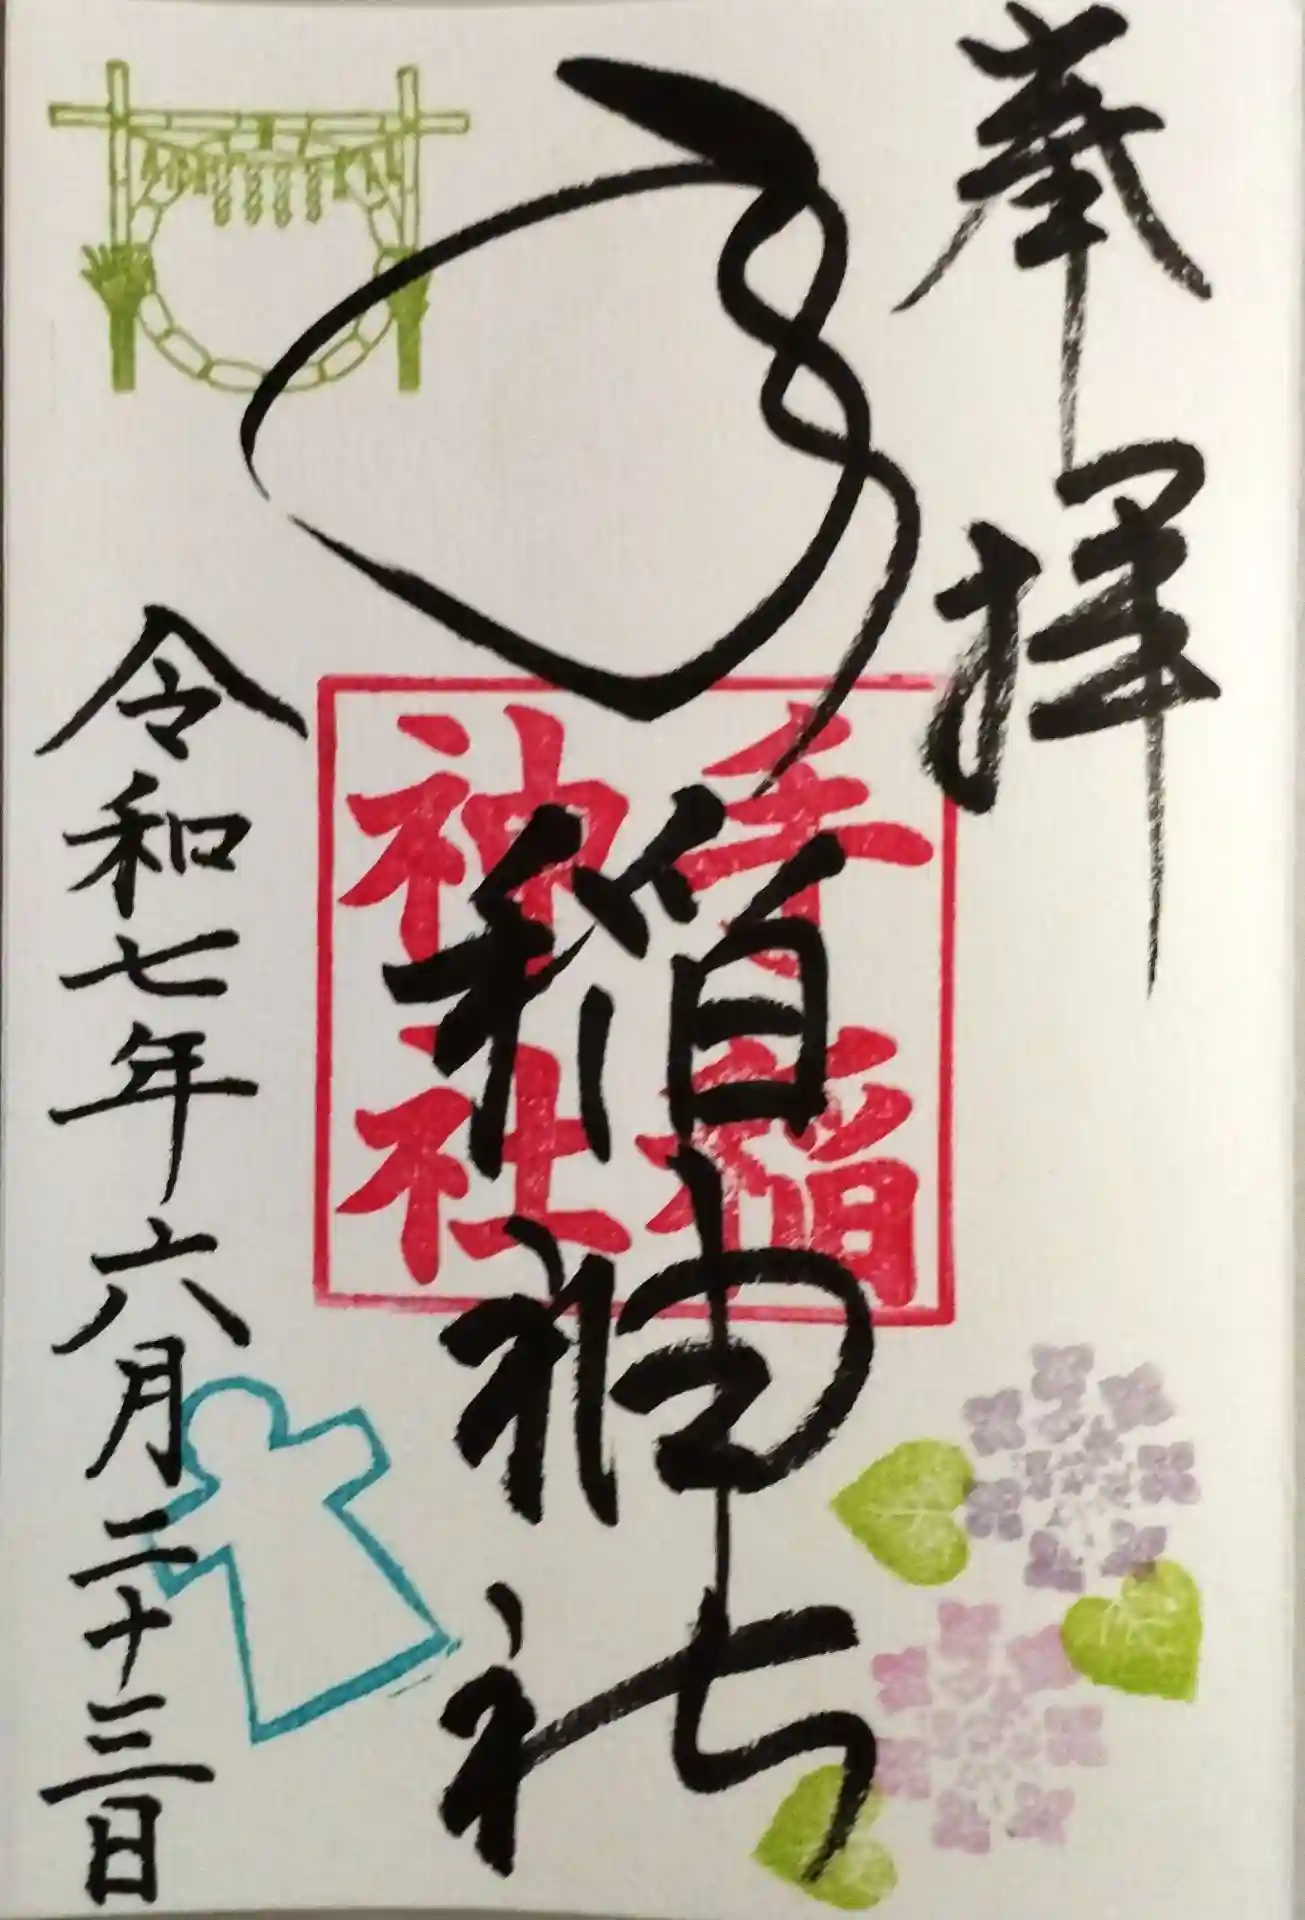 奉拝
手稲神社
手稲
神社
令和七年六月二十三日